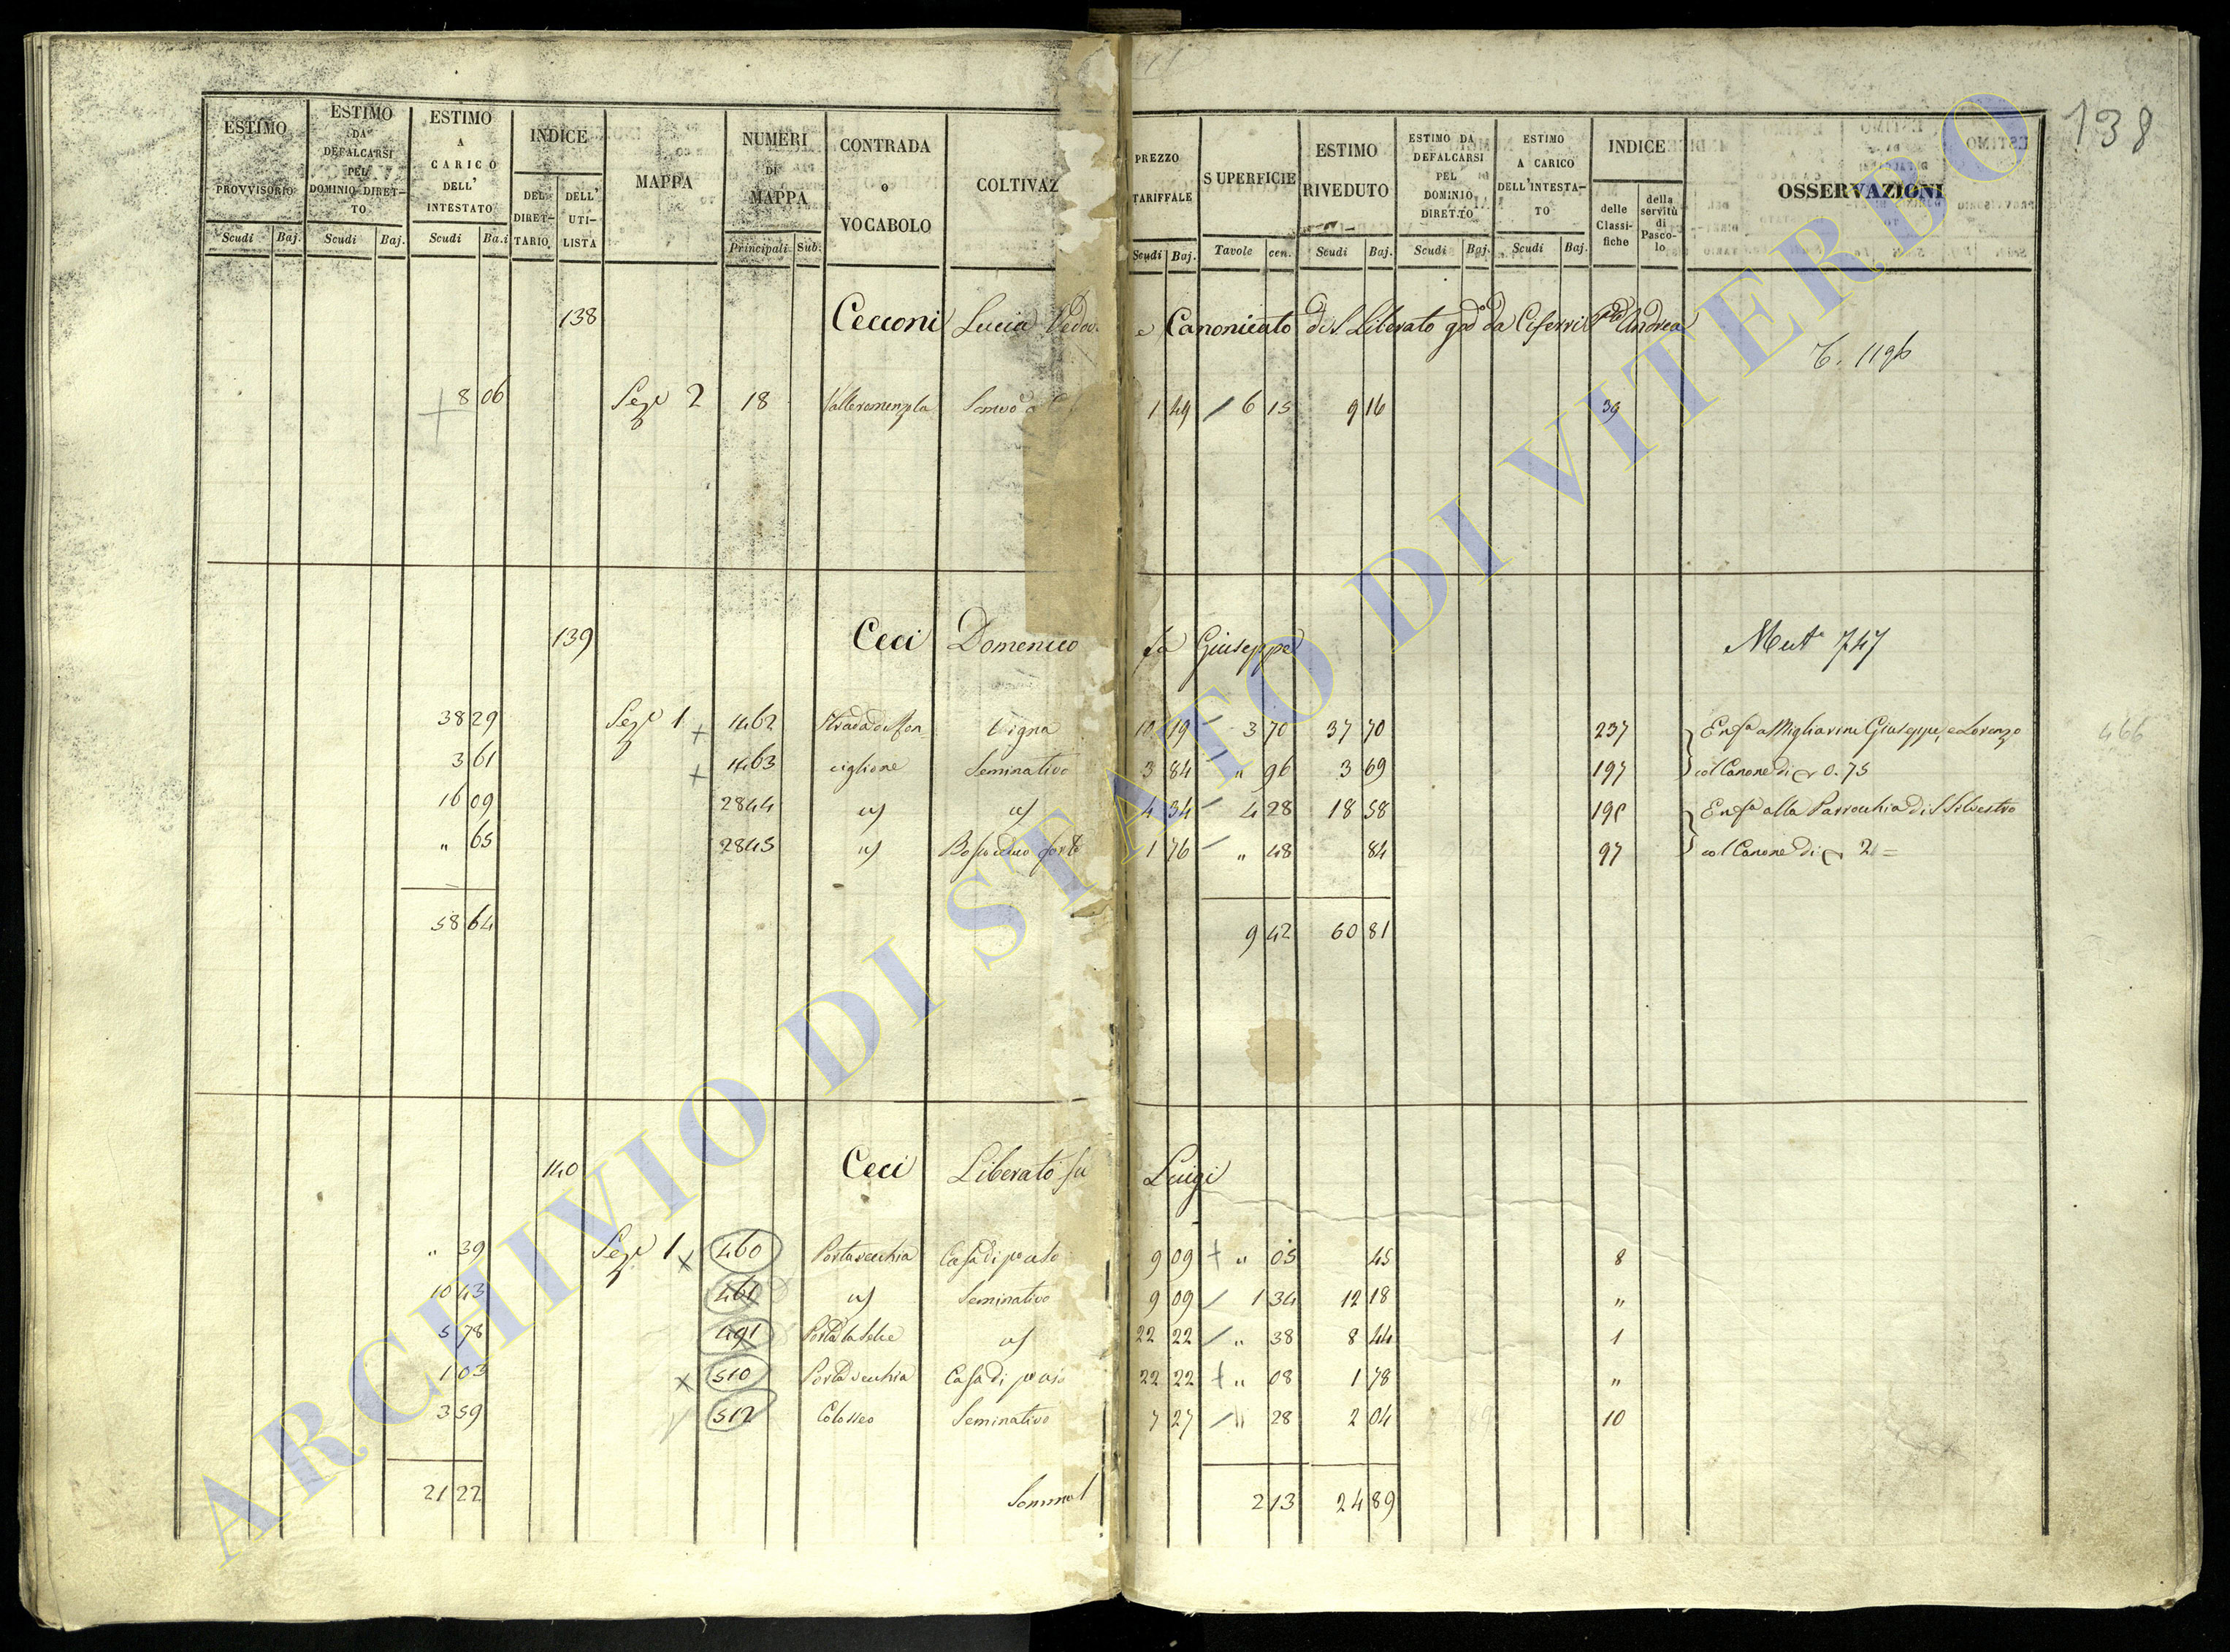 138
ESTIMO PROVVISORIO Scudi Baj.
ESTIMO DA DEFALCARSI PEL DOMINIO DIRETTO Scudi Baj.
ESTIMO A CARICO DELL' INTESTATO Scudi Ba.i
INDICE DEL DIRETTARIO DELL' UTILISTA
MAPPA
NUMERI DI MAPPA Principali Sub.
CONTRADA o VOCABOLO
COLTIVAZ
PREZZO TARIFFALE Scudi Baj.
SUPERFICIE Tavole cen.
ESTIMO RIVEDUTO Scudi Baj.
ESTIMO DA DEFALCARSI PEL DOMINIO DIRETTO Scudi Baj.
ESTIMO A CARICO DELL'INTESTATO Scudi Baj.
INDICE delle Classifiche della servitù di Pascolo
OSSERVAZIONI
138 Cecconi Lucia Vedov. e Canonicato di S. Liberato Ciferri Andrea
1196
8 06 Sez.e 2 18 1 49 6 15 9 16 39
139 Ceci Domenico fu Giuseppe Mut.e 747
38 29 Sez.e 1 1462 Vigna 10 19 3 70 37 70 237 Enf.a a Migliarini Giuseppe, e Lorenzo 466
3 61 1463 ciglione Seminativo 3 84 " 96 3 69 197 col Canone di 0.75
16 09 2844 id 4 34 4 28 18 58 Enf.a alla Parrocchia di S. Silvestro
" 65 2845 Bosco ceduo forte 1 76 " 48 84 97 col Canone di 2 =
58 64 9 42 60 81
140 Ceci Liberato fu Luigi
" 39 Sez.e 1 460 Portavecchia Casa di 9 09 " 05 45 8
10 43 461 id Seminativo 9 09 1 34 12 18 "
5 78 491 id 22 22 " 38 8 44 1
1 03 510 Porta vecchia Casa di 22 22 " 08 1 78 "
3 59 512 Colosseo Seminativo 7 27 " 28 2 04 10
21 22 2 13 24 89
ARCHIVIO DI STATO DI VITERBO